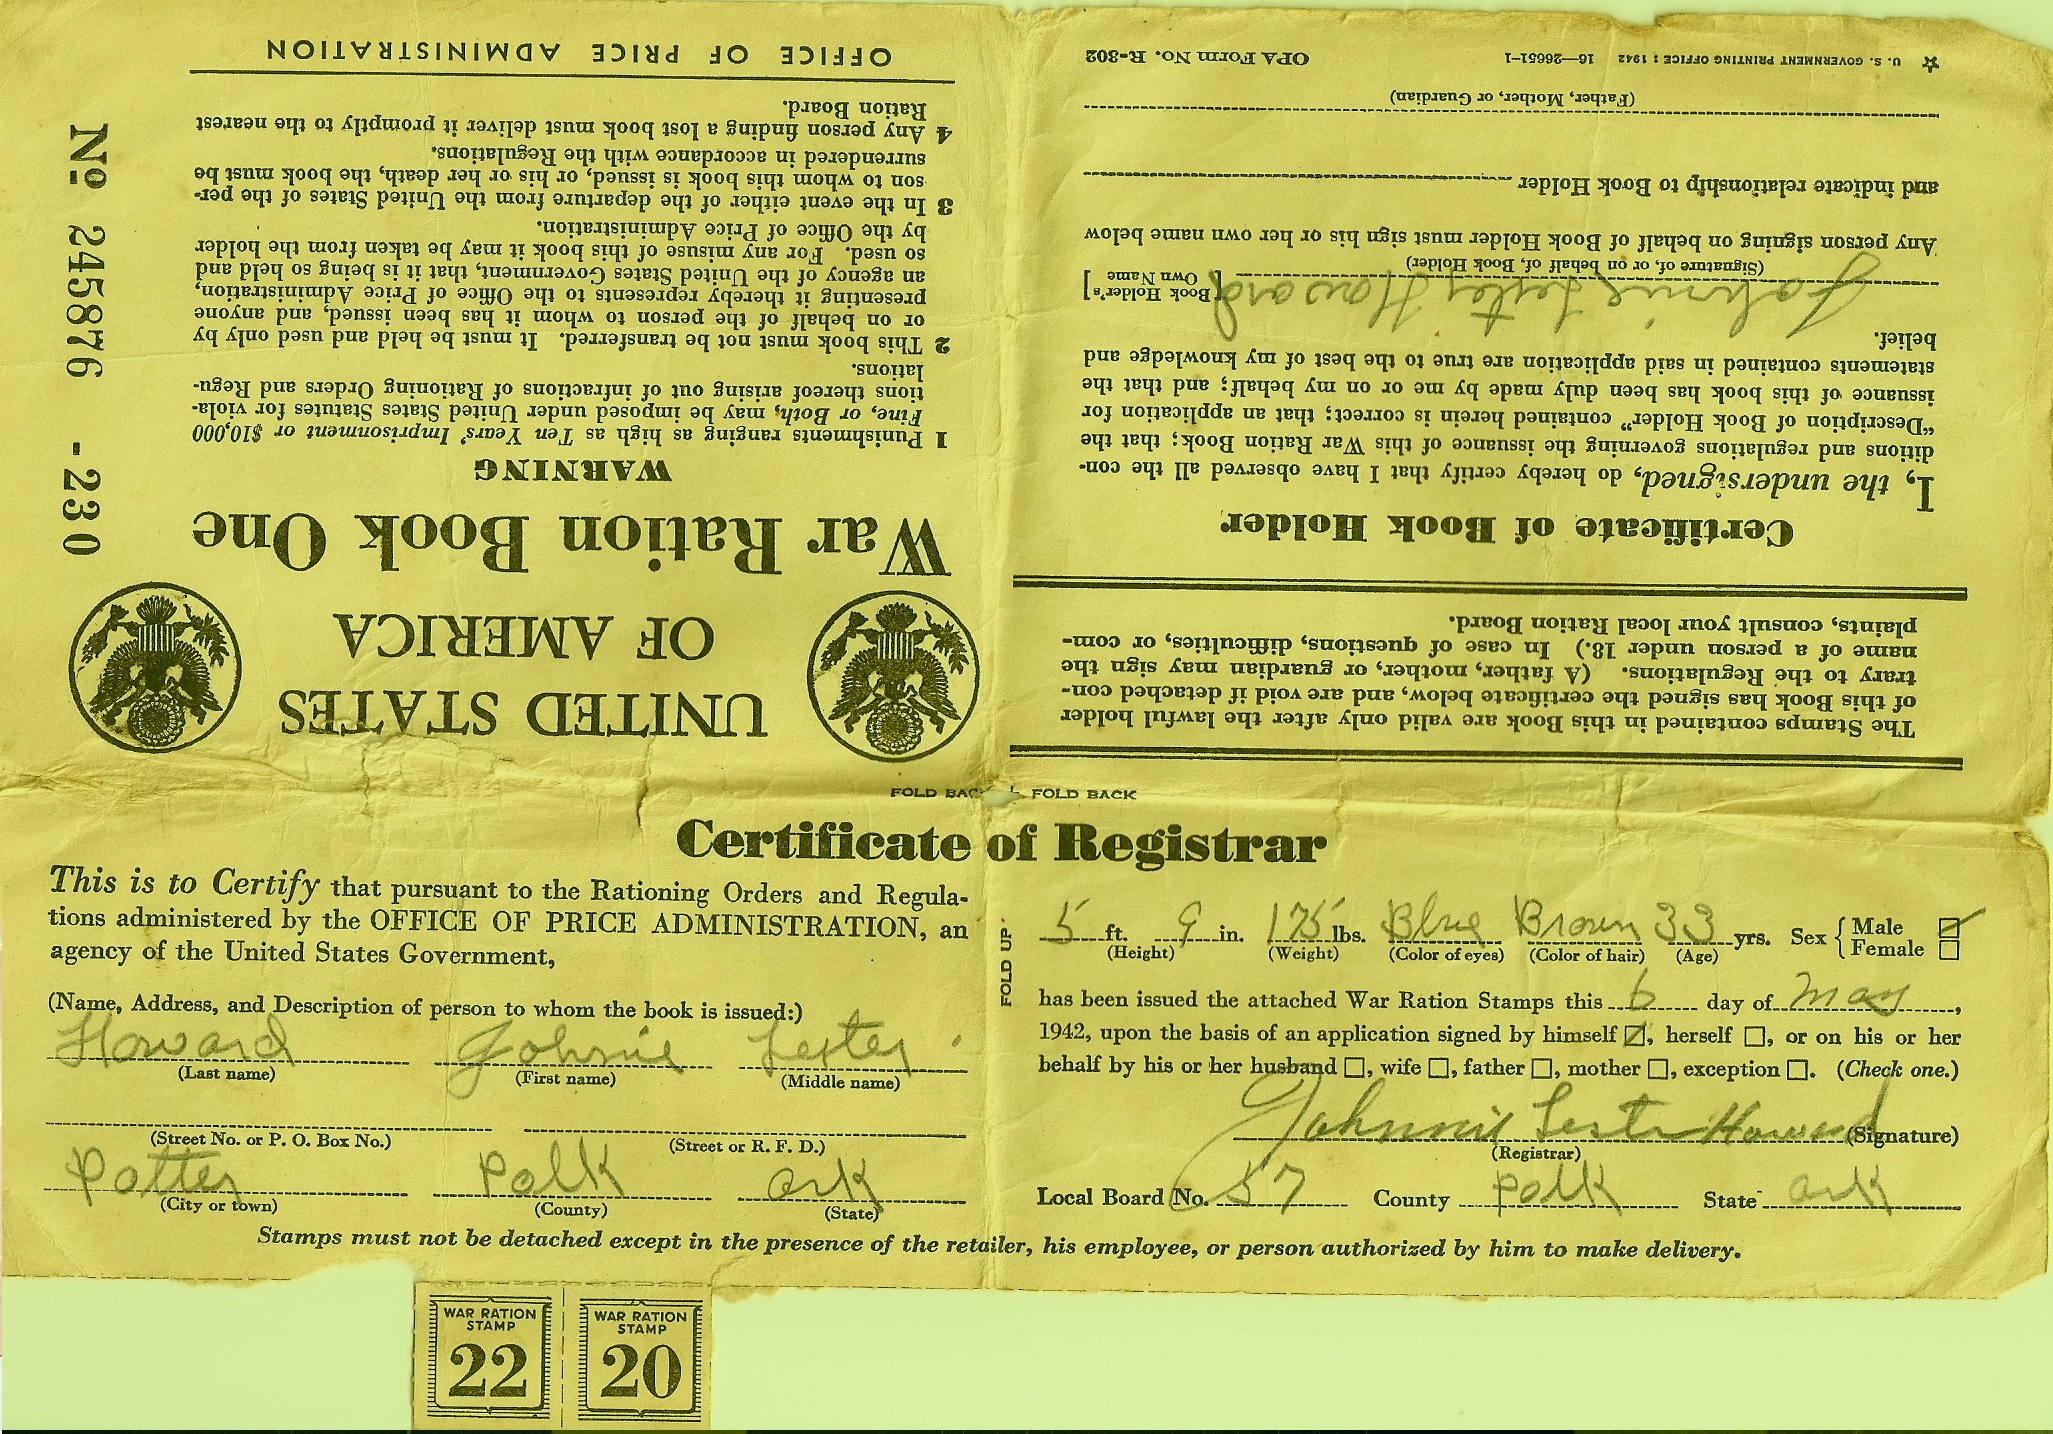 OFFICE OF PRICE ADMINISTRATION
UNITED STATES
OF AMERICA
War Ration Book One
WARNING
1 Punishments ranging as high as Ten Years' Imprisonment or $10,000
Fine, or Both, may be imposed under United States Statutes for viola-
tions thereof arising out of infractions of Rationing Orders and Regu-
lations.
2 This book must not be transferred. It must be held and used only by
or on behalf of the person to whom it has been issued, and anyone
presenting it thereby represents to the Office of Price Administration,
an agency of the United States Government, that it is being so held and
so used. For any misuse of this book it may be taken from the holder
by the Office of Price Administration.
3 In the event either of the departure from the United States of the per-
son to whom this book is issued, or his or her death, the book must be
surrendered in accordance with the Regulations.
4 Any person finding a lost book must deliver it promptly to the nearest
Ration Board.
№ 245876 -230
The Stamps contained in this Book are valid only after the lawful holder
of this Book has signed the certificate below, and are void if detached con-
trary to the Regulations. (A father, mother, or guardian may sign the
name of a person under 18.) In case of questions, difficulties, or com-
plaints, consult your local Ration Board.
Certificate of Book Holder
I, the undersigned, do hereby certify that I have observed all the con-
ditions and regulations governing the issuance of this War Ration Book; that the
"Description of Book Holder" contained herein is correct; that an application for
issuance of this book has been duly made by me or on my behalf; and that the
statements contained in said application are true to the best of my knowledge and
belief.
[Book Holder's Own Name] Johnnie Lester Howard
(Signature of, or on behalf of, Book Holder)
Any person signing on behalf of Book Holder must sign his or her own name below
and indicate relationship to Book Holder
(Father, Mother, or Guardian)
U. S. GOVERNMENT PRINTING OFFICE : 1942 16—26651-1 OPA Form No. R-302
FOLD BACK FOLD BACK
Certificate of Registrar
This is to Certify that pursuant to the Rationing Orders and Regula-
tions administered by the OFFICE OF PRICE ADMINISTRATION, an
agency of the United States Government,
(Name, Address, and Description of person to whom the book is issued:)
Howard Johnnie Lester
(Last name) (First name) (Middle name)
(Street No. or P. O. Box No.) (Street or R. F. D.)
Potter Polk Ark
(City or town) (County) (State)
FOLD UP
5 ft. 9 in. 175 lbs. Blue Brown 33 yrs. Sex { Male
Female
(Height) (Weight) (Color of eyes) (Color of hair) (Age)
has been issued the attached War Ration Stamps this 6 day of May,
1942, upon the basis of an application signed by himself ☑, herself ☐, or on his or her
behalf by his or her husband ☐, wife ☐, father ☐, mother ☐, exception ☐. (Check one.)
Johnnie Lester Howard (Signature)
(Registrar)
Local Board No. 57 County Polk State Ark
Stamps must not be detached except in the presence of the retailer, his employee, or person authorized by him to make delivery.
WAR RATION
STAMP
22
WAR RATION
STAMP
20